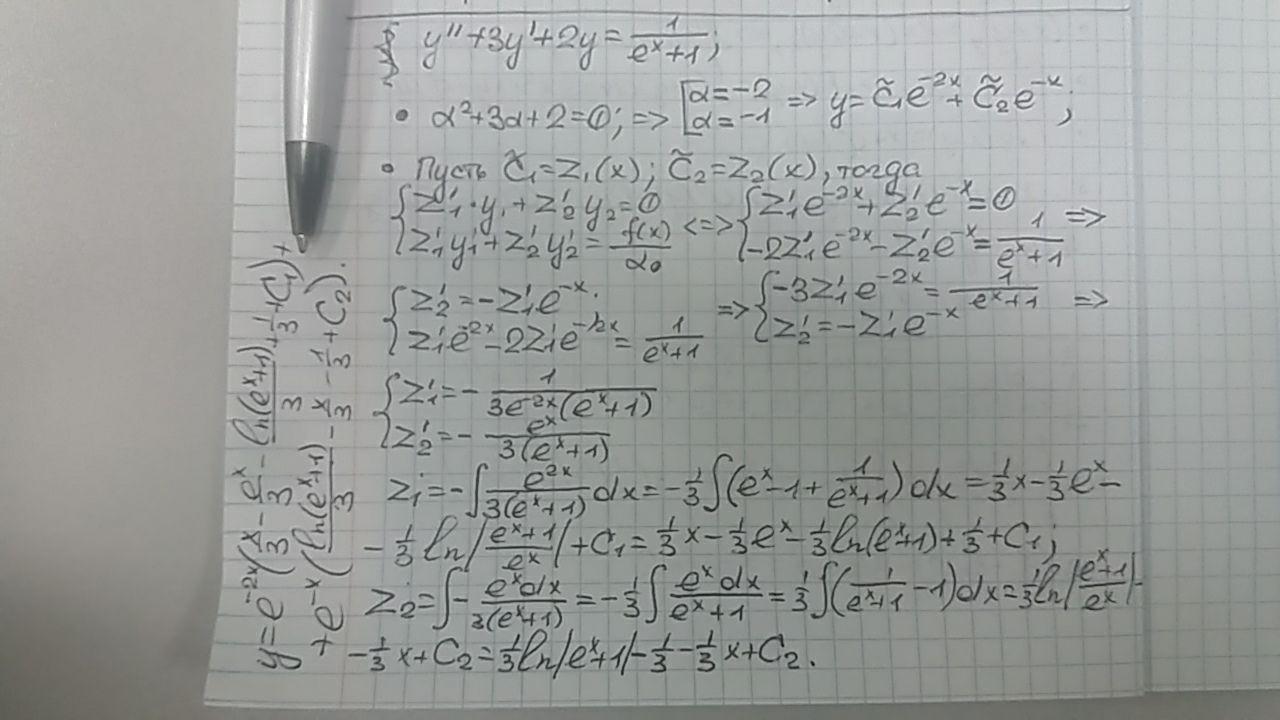 y''+3y'+2y=1/(eˣ+1);
• α²+3α+2=0; => [α=-2 α=-1 => y=C̃₁e⁻²ˣ+C̃₂e⁻ˣ;
• Пусть C̃₁=Z₁(x); C̃₂=Z₂(x), тогда
{Z₁'·y₁+Z₂'y₂=0 Z₁'y₁'+Z₂'y₂'=f(x)/α₀ <=> {Z₁'e⁻²ˣ+Z₂'e⁻ˣ=0 -2Z₁'e⁻²ˣ-Z₂'e⁻ˣ=1/(eˣ+1) =>
{Z₂'=-Z₁'e⁻ˣ. Z₁'e⁻²ˣ-2Z₁'e⁻²ˣ=1/(eˣ+1) => {-3Z₁'e⁻²ˣ=1/(eˣ+1) Z₂'=-Z₁'e⁻ˣ =>
{Z₁'=-1/(3e⁻²ˣ(eˣ+1)) Z₂'=-eˣ/(3(eˣ+1))
Z₁=-∫e²ˣ/(3(eˣ+1))dx=-1/3∫(eˣ-1+1/(eˣ+1))dx=1/3x-1/3eˣ-
-1/3ln|(eˣ+1)/eˣ|+C₁=1/3x-1/3eˣ-1/3ln(eˣ+1)+1/3+C₁;
Z₂=∫-eˣdx/(3(eˣ+1))=-1/3∫eˣdx/(eˣ+1)=1/3∫(1/(eˣ+1)-1)dx=1/3ln|(eˣ+1)/eˣ|-
-1/3x+C₂=1/3ln|eˣ+1|-1/3-1/3x+C₂.
y=e⁻²ˣ(x/3-eˣ/3-ln(eˣ+1)/3+1/3+C₁)+
+e⁻ˣ(ln(eˣ+1)/3-x/3-1/3+C₂).